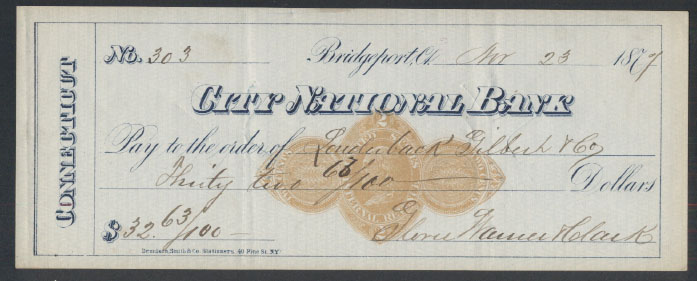 CONNECTICUT
No. 303 Bridgeport, Ct. Nov 23 1877
CITY NATIONAL BANK
Pay to the order of Louderback Gilbert & Co
Thirty two 63/100 Dollars
$32.63/100
Warner & Clark
2
Stationers, 40 Pine St. NY